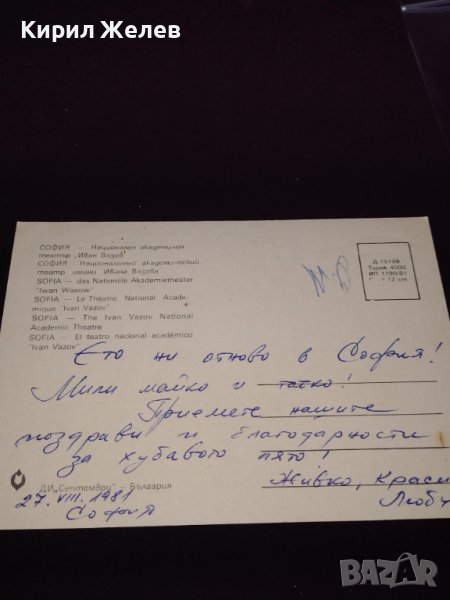 Кирил Желев
СОФИЯ – Национален академичен
театър „Иван Вазов"
СОФИЯ – Национальный академический
театр имени Ивана Вазова
SOFIA – das Nationale Akademietheater
"Iwan Wasow"
SOFIA – Le Théatre National Acade-
mique "Ivan Vazov"
SOFIA – The Ivan Vazov National
Academic Theatre
SOFIA – El teatro nacional académico
"Ivan Vazov"
Д 15198
Тираж 4000
ИП 1790/81
12 cm
Ето ни отново в София!
Мили майко и татко!
Приемете нашите
поздрави и благодарности
за хубавото лято!
ДИ „Септември" - България
Живко, Краси
Любч
27. VIII. 1981
София
BAZAR